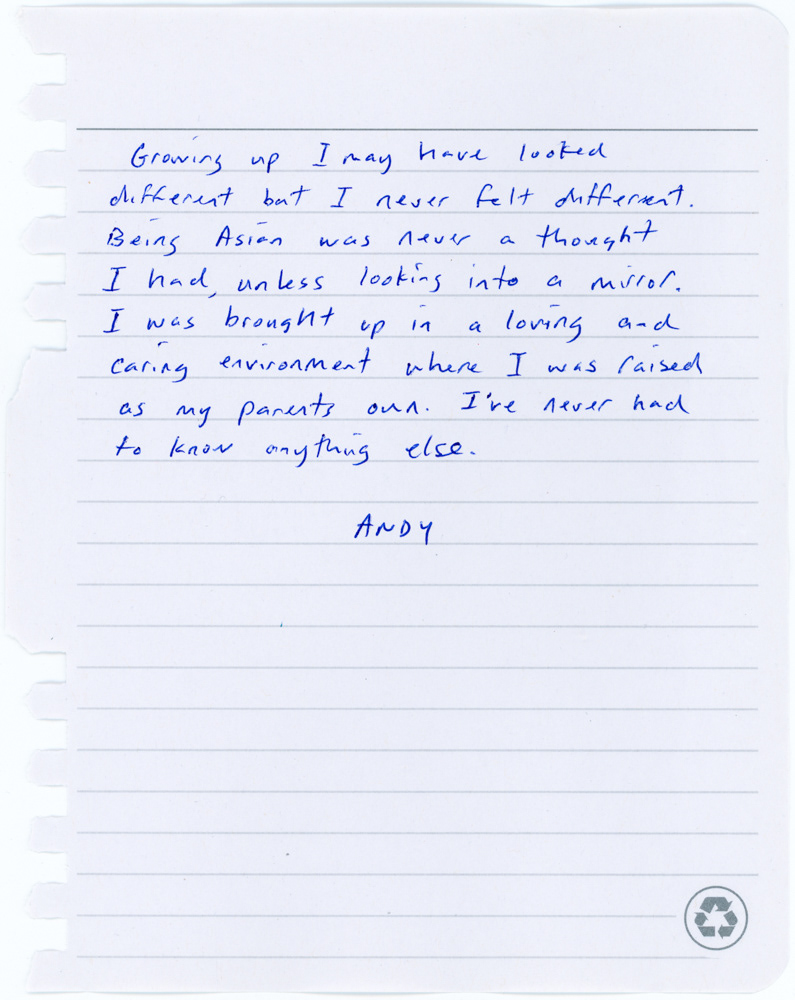 Growing up I may have looked
different but I never felt different.
Being Asian was never a thought
I had, unless looking into a mirror.
I was brought up in a loving and
caring environment where I was raised
as my parents own. I've never had
to know anything else.
ANDY